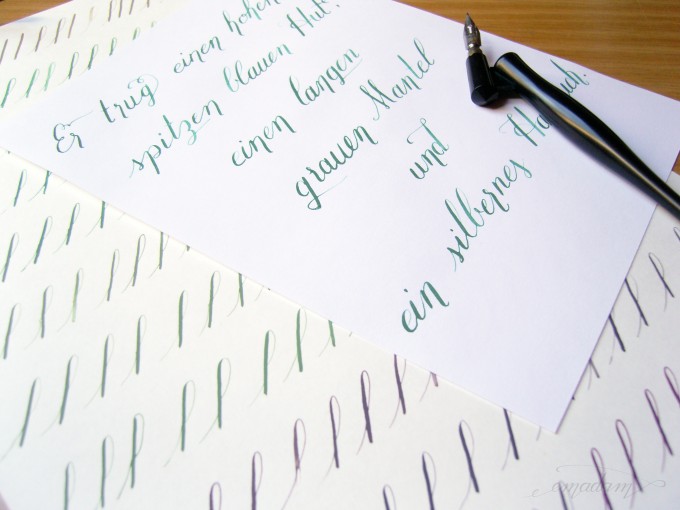 Er trug einen hohen
spitzen blauen Hut,
einen langen
grauen Mantel
und
ein silbernes